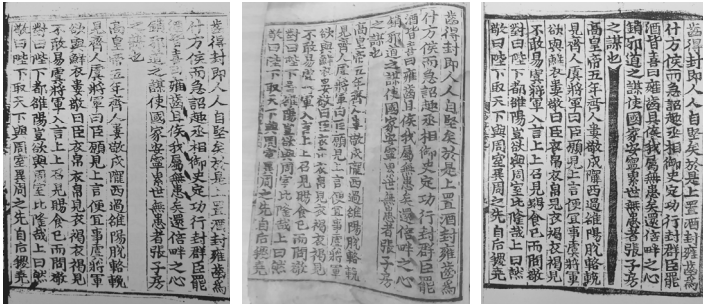 齒得封即人人自堅矣於是上置酒封雍齒為
什方侯而急詔趣丞相御史定功行封群臣罷
酒皆喜曰雍齒且侯我屬無患矣還倍畔之心
銷邪道之謀使國家安寧累世無患者張子房
之謀也
高皇帝五年齊人婁敬戍隴西過雒陽脫輅輓
見齊人虞將軍曰臣願見上言便宜事虞將軍
欲與鮮衣婁敬曰臣衣帛衣帛見衣褐衣褐見
不敢易虞將軍入言上上召見賜食已而問敬
對曰陛下都雒陽豈欲與周室比隆哉上曰然
敬曰陛下取天下與周室異周之先自后稷堯
齒得封即人人自堅矣於是上置酒封雍齒為
什方侯而急詔趣丞相御史定功行封群臣罷
酒皆喜曰雍齒且侯我屬無患矣還倍畔之心
銷邪道之謀使國家安寧累世無患者張子房
之謀也
高皇帝五年齊人婁敬戍隴西過雒陽脫輅輓
見齊人虞將軍曰臣願見上言便宜事虞將軍
欲與鮮衣婁敬曰臣衣帛衣帛見衣褐衣褐見
不敢易虞將軍入言上上召見賜食已而問敬
對曰陛下都雒陽豈欲與周室比隆哉上曰然
敬曰陛下取天下與周室異周之先自后稷堯
齒得封即人人自堅矣於是上置酒封雍齒為
什方侯而急詔趣丞相御史定功行封群臣罷
酒皆喜曰雍齒且侯我屬無患矣還倍畔之心
銷邪道之謀使國家安寧累世無患者張子房
之謀也
高皇帝五年齊人婁敬戍隴西過雒陽脫輅輓
見齊人虞將軍曰臣願見上言便宜事虞將軍
欲與鮮衣婁敬曰臣衣帛衣帛見衣褐衣褐見
不敢易虞將軍入言上上召見賜食已而問敬
對曰陛下都雒陽豈欲與周室比隆哉上曰然
敬曰陛下取天下與周室異周之先自后稷堯